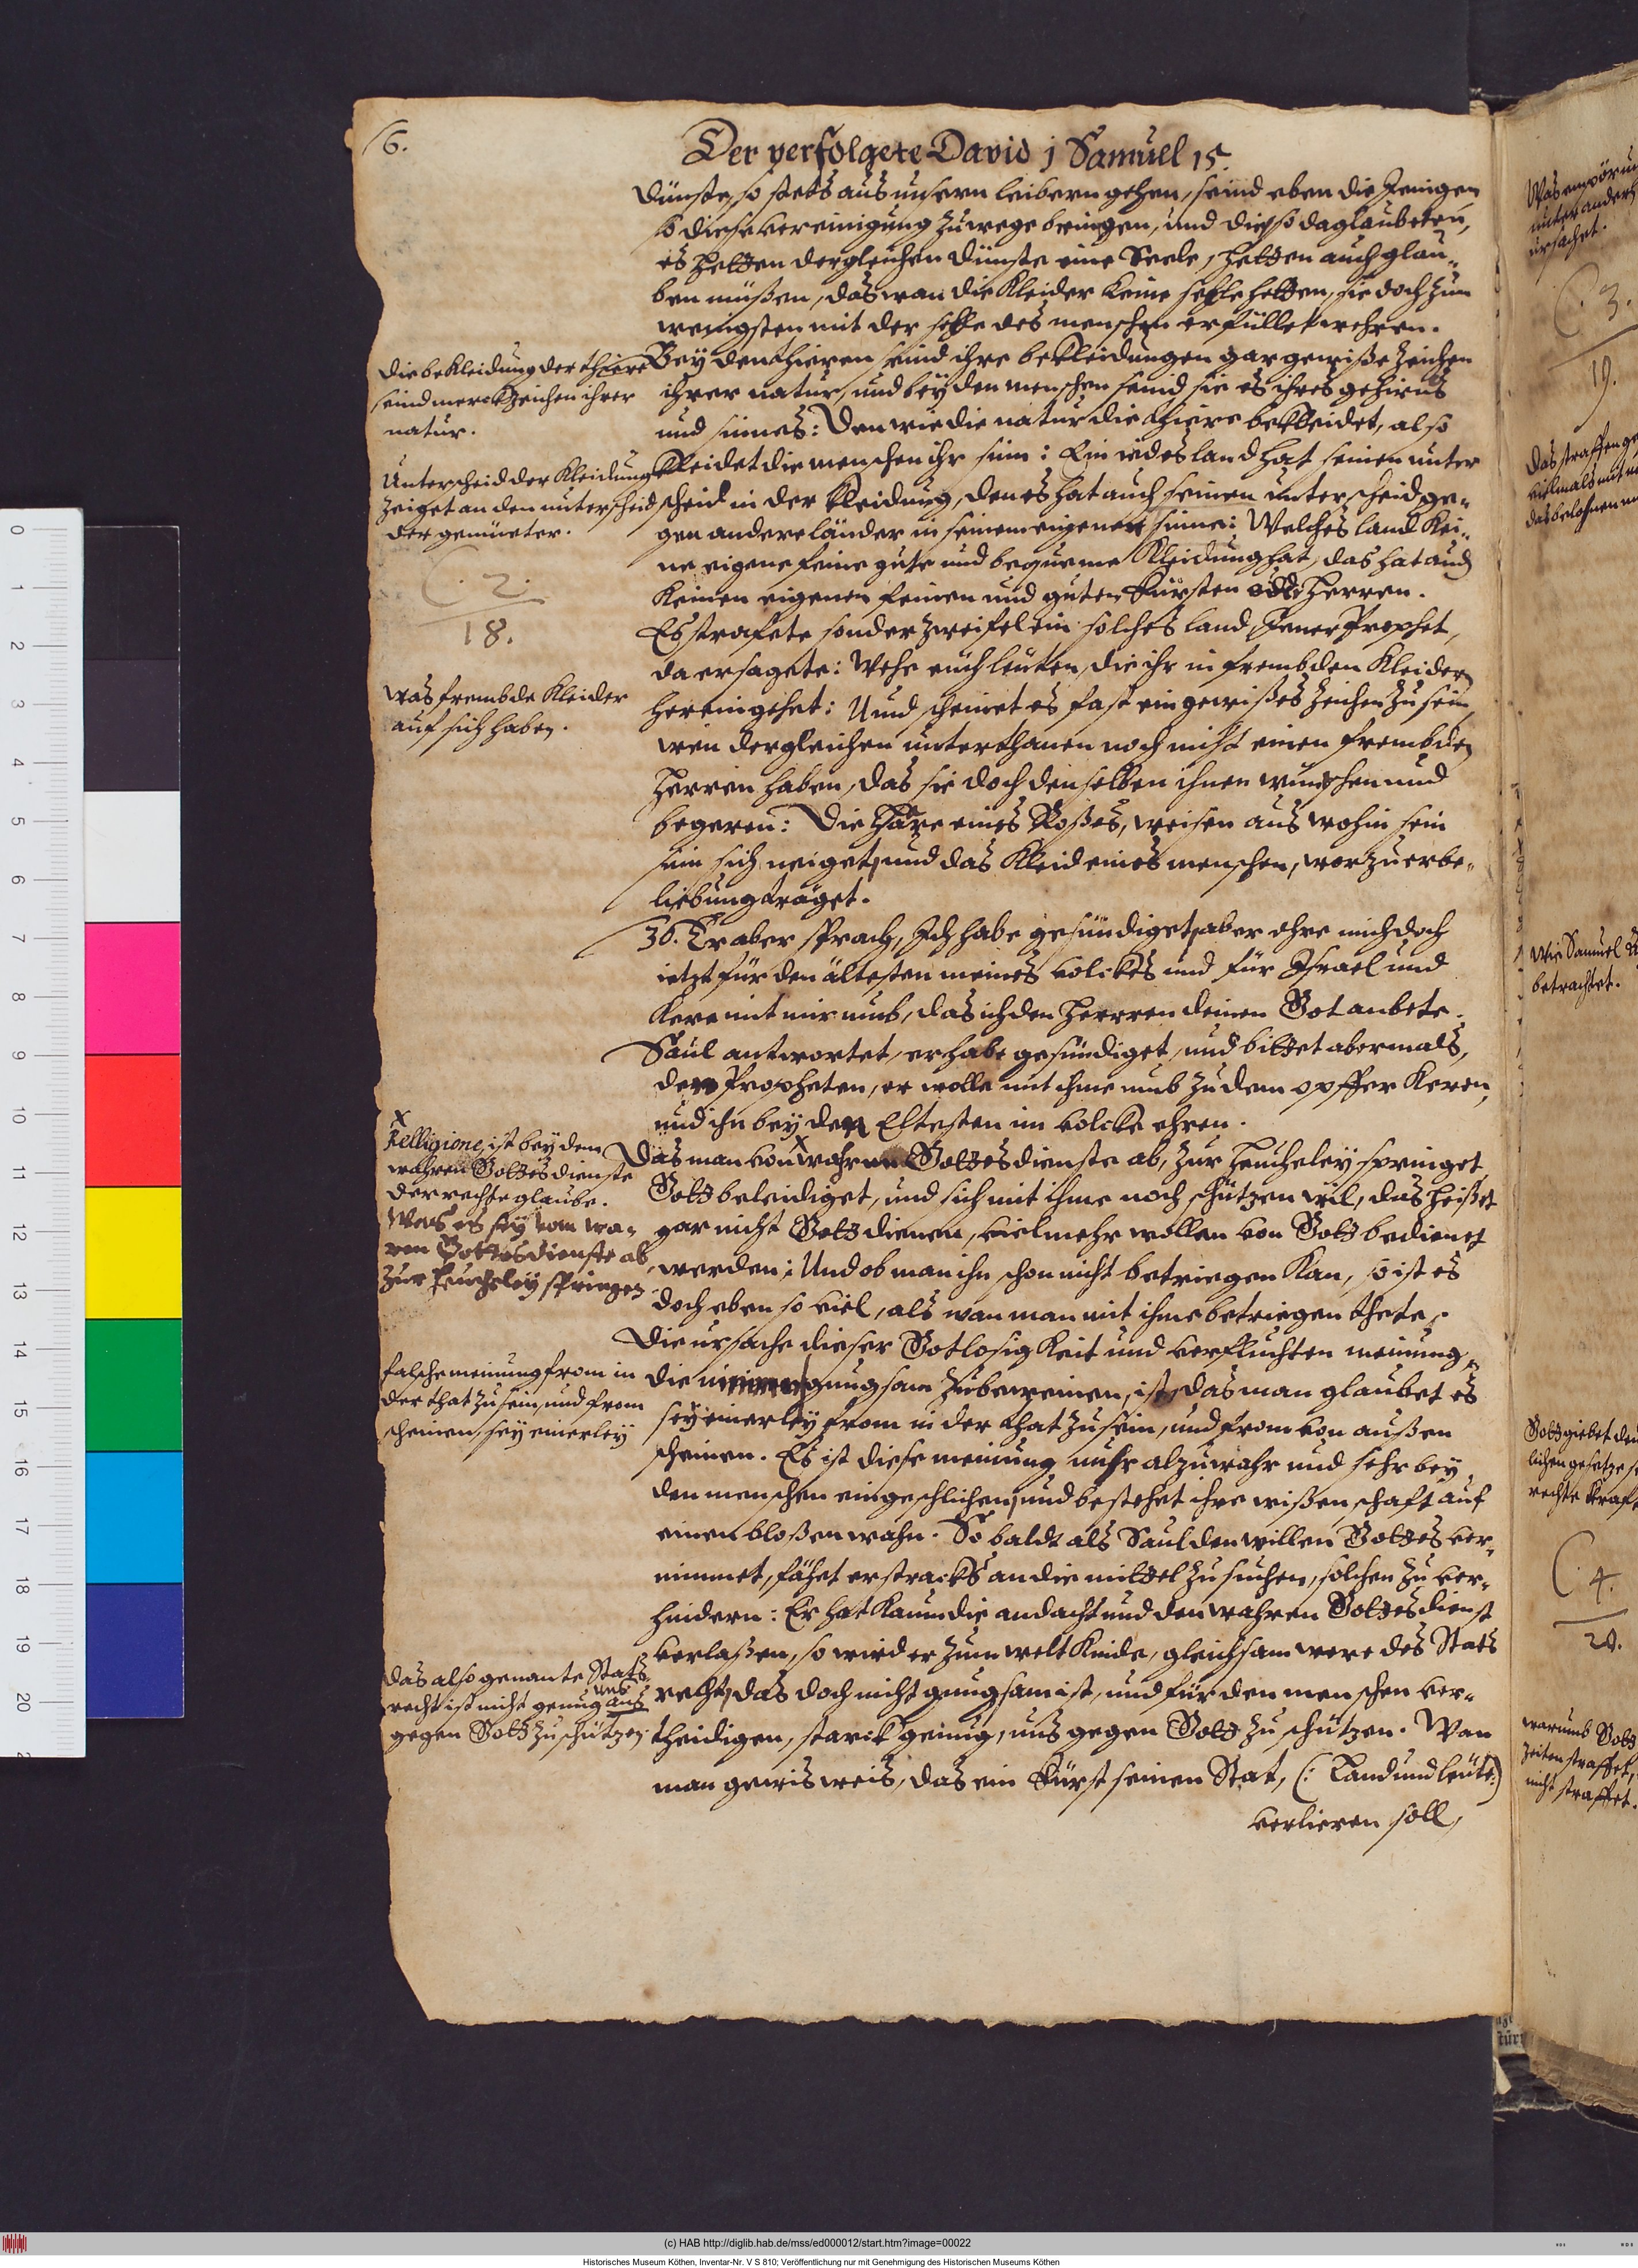 16.
Der verfolgete David 1 Samuel 15.
dünste, so stets aus unsern leibern gehen, seind eben die Jenigen
so diese vereinigung zuwege bringen, und die so da glaubeten,
es hetten dergleichen dünste eine Seele, hetten auch glau-
ben müßen, das wan die Kleider keine sehle hetten, sie doch zum
wenigsten mit der sehle des menschen erfüllet wehren.
Bey den thieren seind ihre bekleidungen gar gewiße zeichen
ihrer natur, und bey den menschen seind sie es ihres gehirns
und sinnes: Den wie die natur die thiere bekleidet, also
kleidet die menschen ihr sinn: Ein iedes land hat seinen unter
scheid in der kleidung, den es hat auch seinen unterscheid ge-
gen andere länder in seinem eigenen sinne: Welches land kei-
ne eigene feine gute und bequeme Kleidung hat, das hat auch
keinen eigenen feinen und guten Fürsten oder Herren.
Es strafete sonder zweifel ein solches land, Jener Prophet,
da er sagete: Wehe euch leuten, die ihr in frembden Kleidern
herein gehet: Und scheinet es fast ein gewißes zeichen zu sein,
wen dergleichen unterthanen noch nicht einen frembden
Herren haben, das sie doch denselben ihnen wünschen und
begeren: Die Häre eines Roßes, weisen aus wohin sein
sinn sich neiget, und das Kleid eines menschen, worzu er be-
liebung träget.
30. Er aber sprach, Ich habe gesündiget, aber ehre mich doch
ietzt für den ältesten meines volckes und für Israel und
Kere mit mir umb, das ich den Herren deinen Got anbete.
Saul antwortet, er habe gesündiget, und bittet abermals,
den Propheten, er wolle mit ihme umb zu dem opffer Keren,
und ihn bey den Eltesten im volcke ehren.
Das man von wahren Gottesdienste ab, zur heucheley springet,
Gott beleidiget, und sich mit ihme noch schützen wil, das heißet
gar nicht Gott dienen, vielmehr wollen von Gott bedienet
werden: Und ob man ihn schon nicht betriegen kan, so ist es
doch eben so viel, als wan man mit ihme betriegen thete.
Die ursache dieser Gotlosigkeit und verfluchten meinung,
die gnugsam zu beweinen, ist, das man glaubet es
sey einerley from in der that zu sein, und from von außen
scheinen. Es ist diese meinung mehr alzuwahr und sehr bey
den menschen eingeschlichen, und bestehet ihre wißenschaft auf
einen bloßen wahn. So baldt als Saul den willen Gottes ver-
nimmet, fähet er stracks an die mittel zu suchen, solchen zu ver-
hindern: Er hat kaum die andacht und den wahren Gottesdienst
verlaßen, so wird er zum welt kinde, gleichsam were des Stats
recht, das doch nicht gnugsam ist, und für den menschen ver-
theidigen, starck genug, uns gegen Gott zu schützen. Wan
man gewis weis, das ein Fürst seinen Stat, (: Land und leute:)
verlieren soll,
die bekleidung der thiere
seind merckzeichen ihrer
natur.
Unterscheid der Kleidung
zeiget an den unterscheid
der gemüeter.
(. 2.
18.
was frembde Kleider
auf sich haben.
x
Relligione, ist bey dem
wahren Gottesdienste
der rechte glaube.
Was es sey vom wa-
ren Gottesdienste ab,
zur heucheley springen
falsche meinung from in
der that zu sein, und from
scheinen, sey einerley
das also genante Stats
recht ist nicht genug uns
gegen Gott zu schützen.
Was empörung
unter andern
ursachet.
(. 3.
19.
Das straffen ge
vielmals mit
das belohnen
Wie Samuel
betrachtet.
Gott giebet den
lichen gesetze
rechte kraft
(. 4.
20.
warumb Gott
zeiten straffet,
nicht straffet.
0 1 2 3 4 5 6 7 8 9 10 11 12 13 14 15 16 17 18 19 20
(c) HAB http://diglib.hab.de/mss/ed000012/start.htm?image=00022
Historisches Museum Köthen, Inventar-Nr. V S 810; Veröffentlichung nur mit Genehmigung des Historischen Museums Köthen